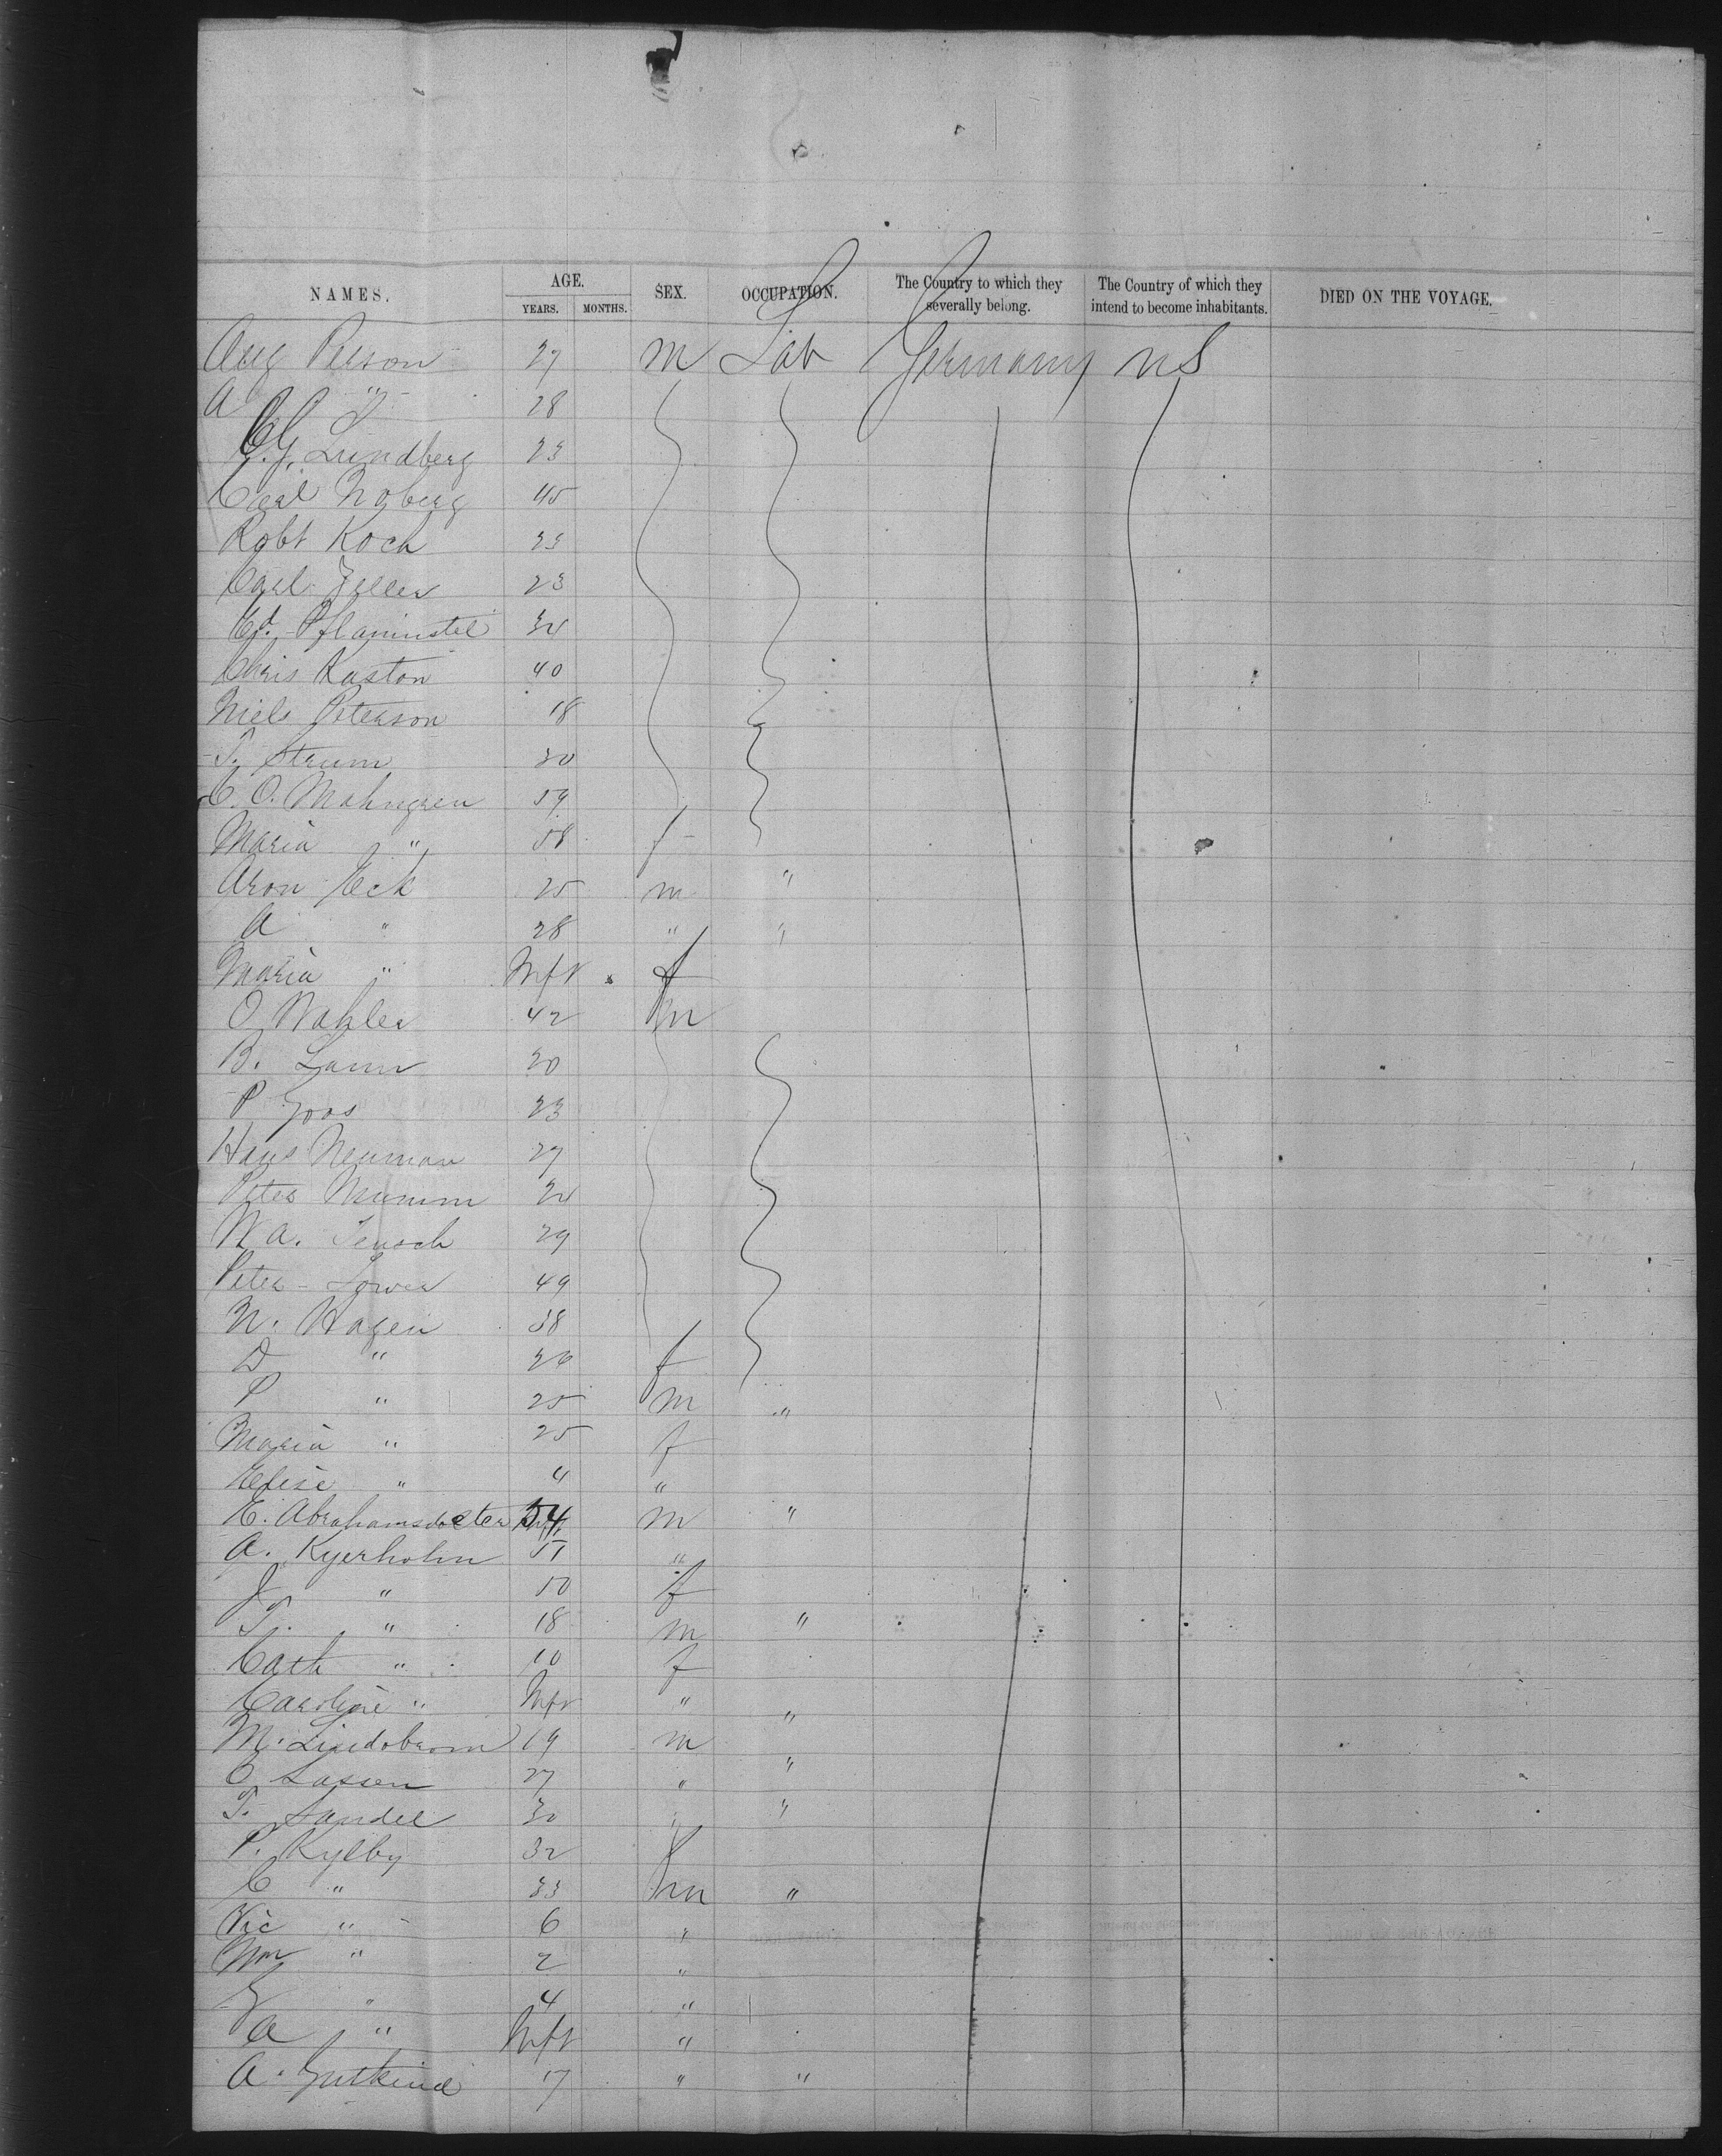 NAMES. AGE. YEARS. MONTHS. SEX. OCCUPATION. The Country to which they severally belong. The Country of which they intend to become inhabitants. DIED ON THE VOYAGE.
Aug Person 27 m Lab Germany US
A " 28
C.J. Lundberg 23
Carl Noberg 45
Robt Koch 23
Carl Zeller 23
Ed. Pflaminstel 34
Chris Kaston 40
Niels Peterson 18
T. Strum 30
C. O. Mahngren 59
Maria " 58 f
Aron Eck 25 m "
A " 28 " "
Maria " Inft f
O Wahler 42 m
B. Laur 20
P Goos 23
Hans Neuman 27
Peter Mumm 24
W A. Tensch 29
Peter Lower 49
N. Hagen 58
D " 26 f
P " 25 m "
Maria " 25 f
Elise " 4 "
E. Abrahamsdocter 54 m "
A. Kyerholm 51 "
J " 50 f
T. " 18 m "
Cath " 10 f
Caroline " Inft " "
M. Lindobrom 19 m "
C Lassen 27 " "
T. Sandel 30 "
P. Kylby 32 f
C " 33 m "
Vic " 6 "
Wm " 2 "
G " 4 "
A " Inft "
A. Gutkind 17 " "